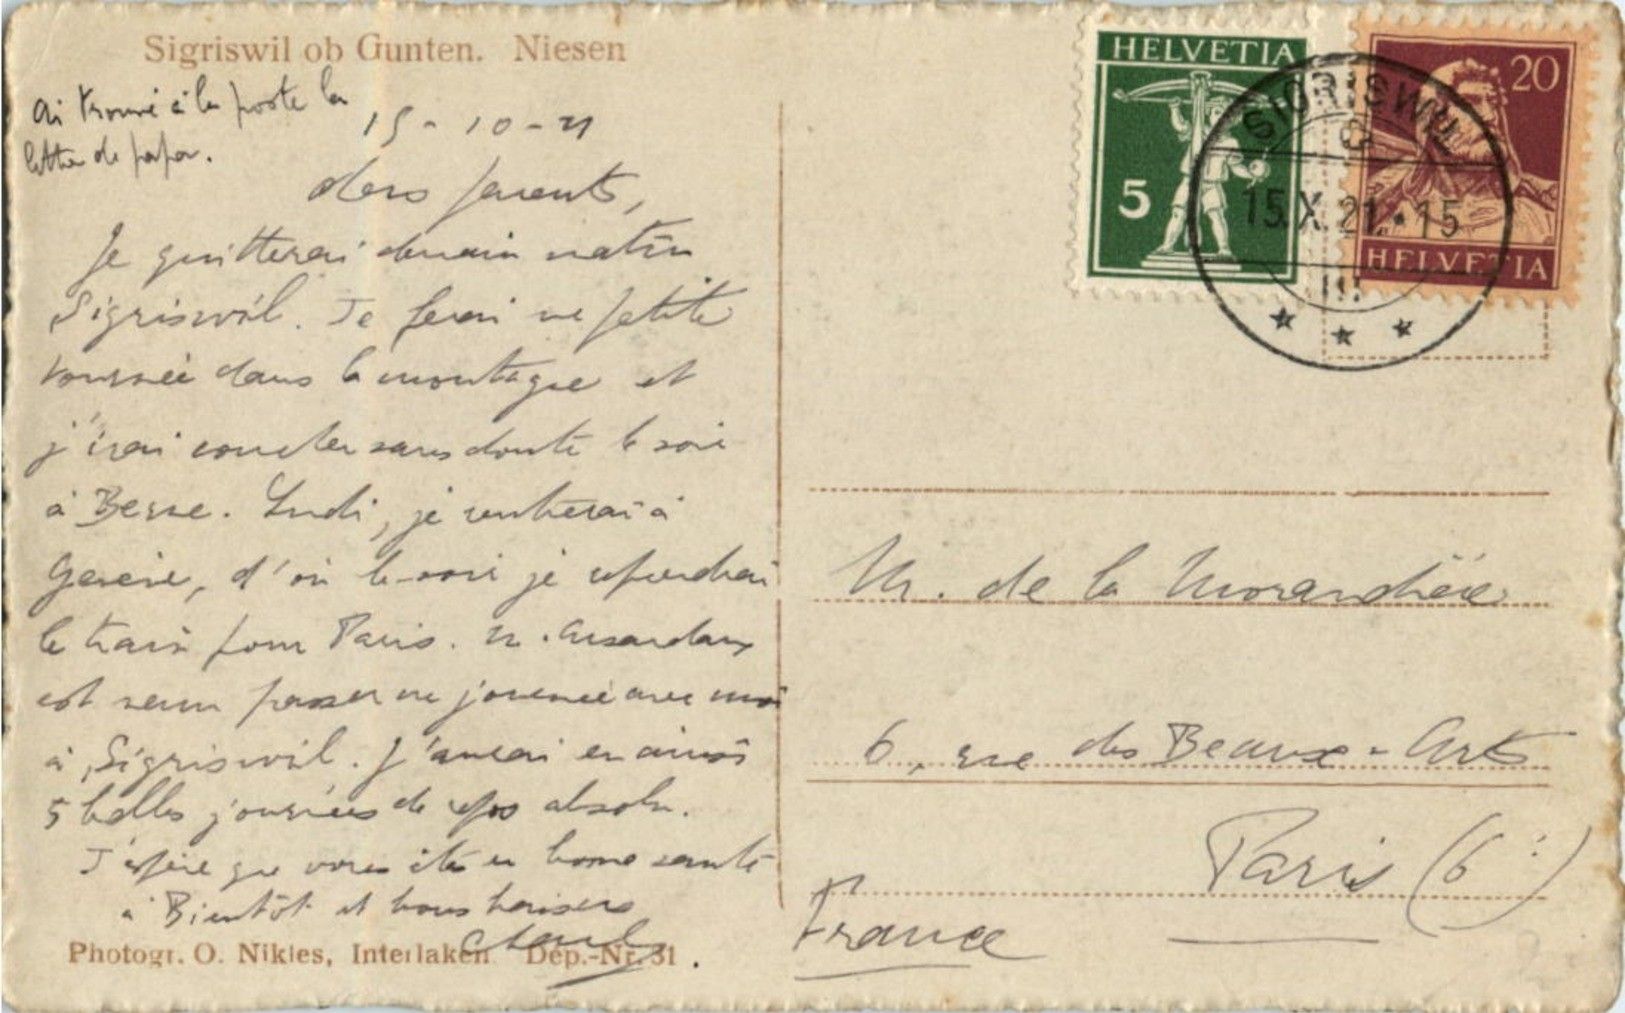 Sigriswil ob Gunten. Niesen
ai trouvé à la poste la
lettre de papa.
15-10-21
chers parents,
Je quitterai demain matin
Sigriswil. Je ferai une petite
tournée dans la montagne et
j'irai coucher sans doute le soir
à Berne. Lundi, je rentrerai à
Genève, d'où le soir je reprendrai
le train pour Paris. M.
est venu passer une journée avec moi
à Sigriswil. J'aurai eu ainsi
5 belles journées de repos absolu.
J'espère que vous êtes en bonne santé
à Bientôt et bons baisers
Charles
Photogr. O. Nikles, Interlaken Dep.-Nr. 31
HELVETIA
5
20
HELVETIA
SIGRISWIL
15.X.21.-15
M. de la Morandière
6, rue des Beaux-Arts
Paris (6e)
France